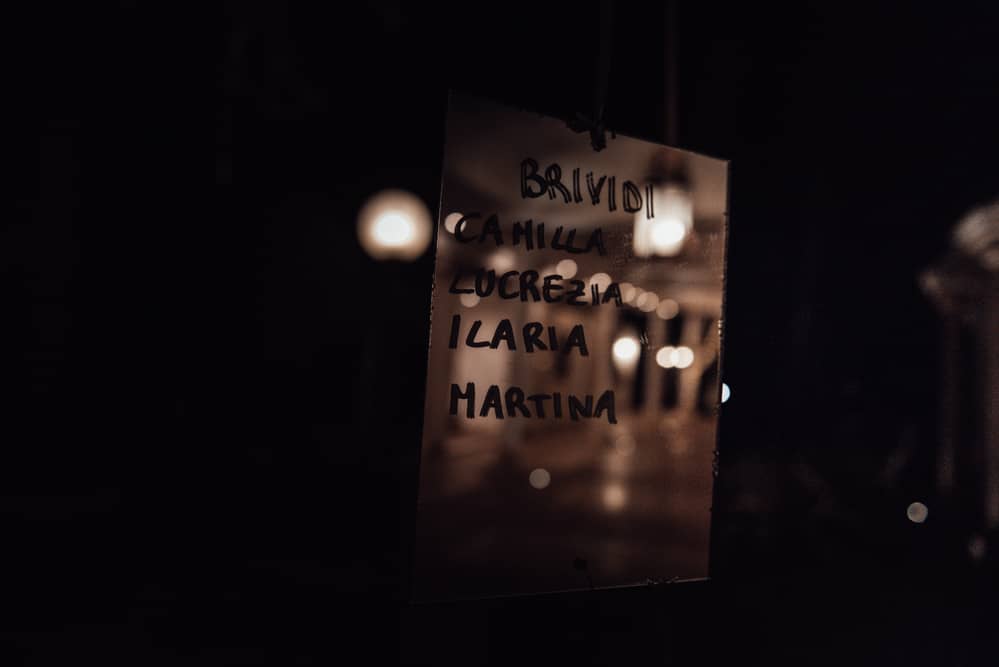 BRIVIDI
CAMILLA
LUCREZIA
ILARIA
MARTINA